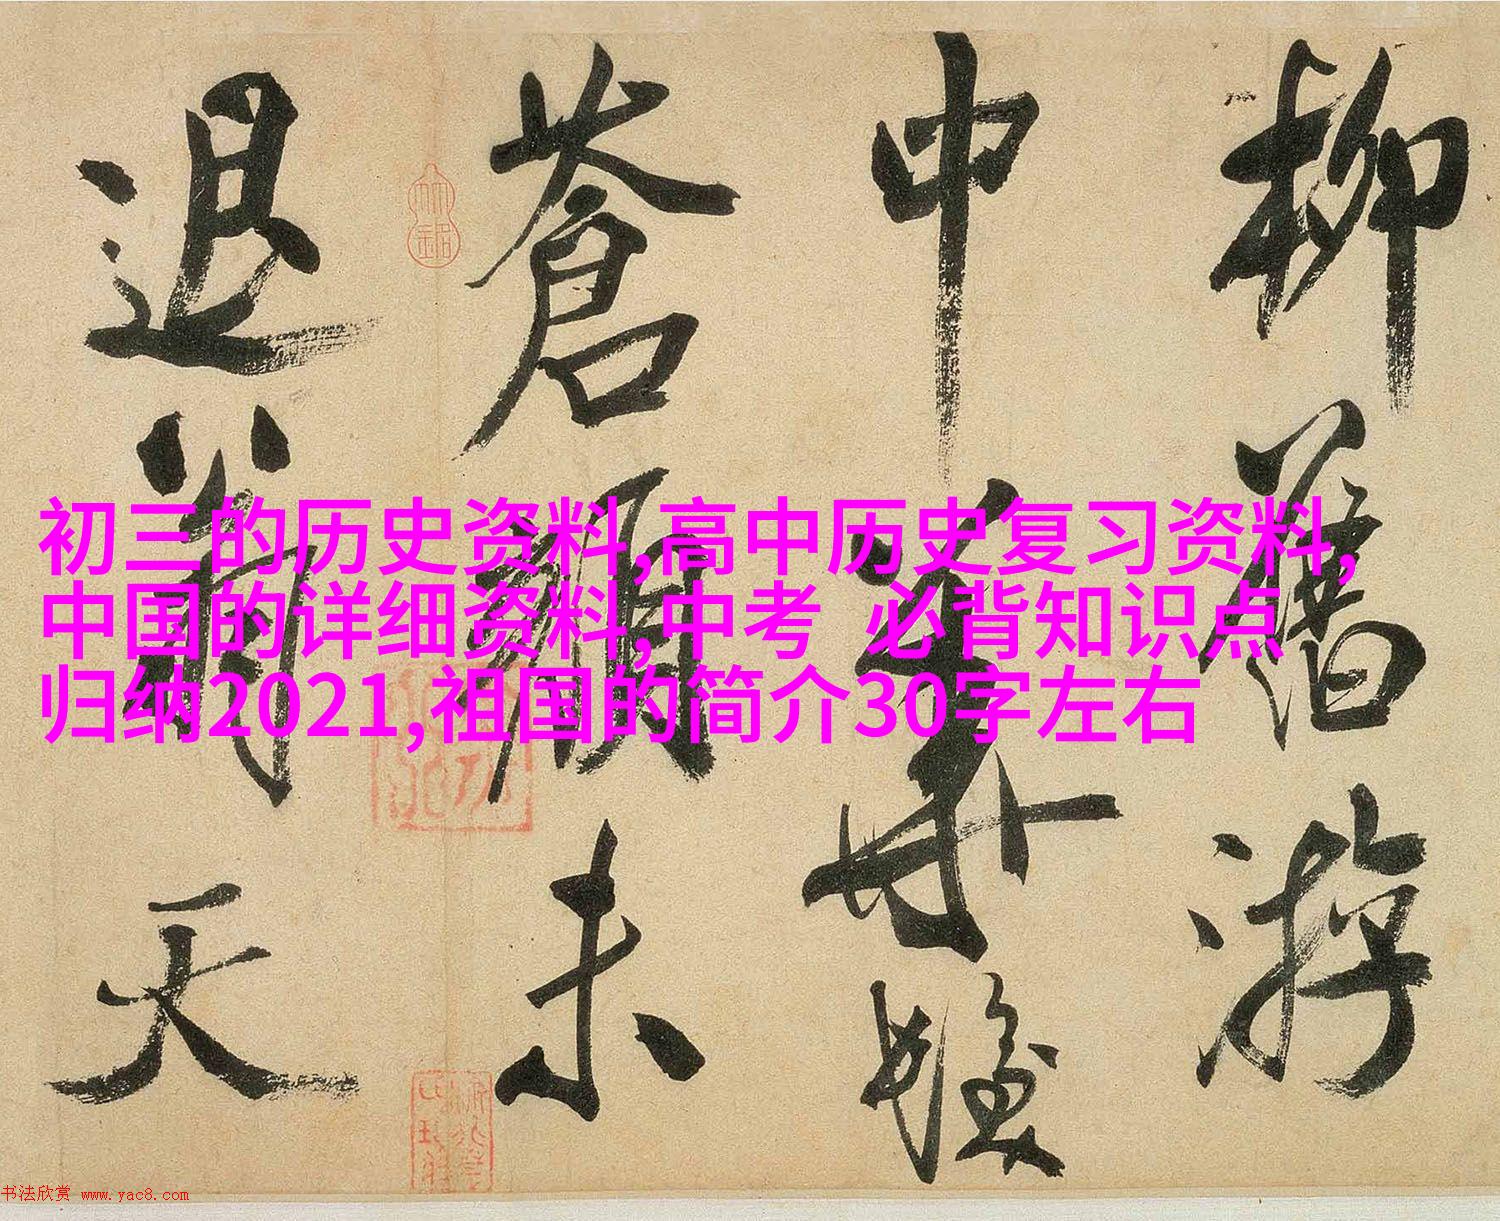 初三的历史资料,高中历史复习资料,
中国的详细资料,中考 必背知识点
归纳2021,祖国的简介30字左右
柳 游
中
蒼顏未
退 天
书法欣赏 www.yac8.com